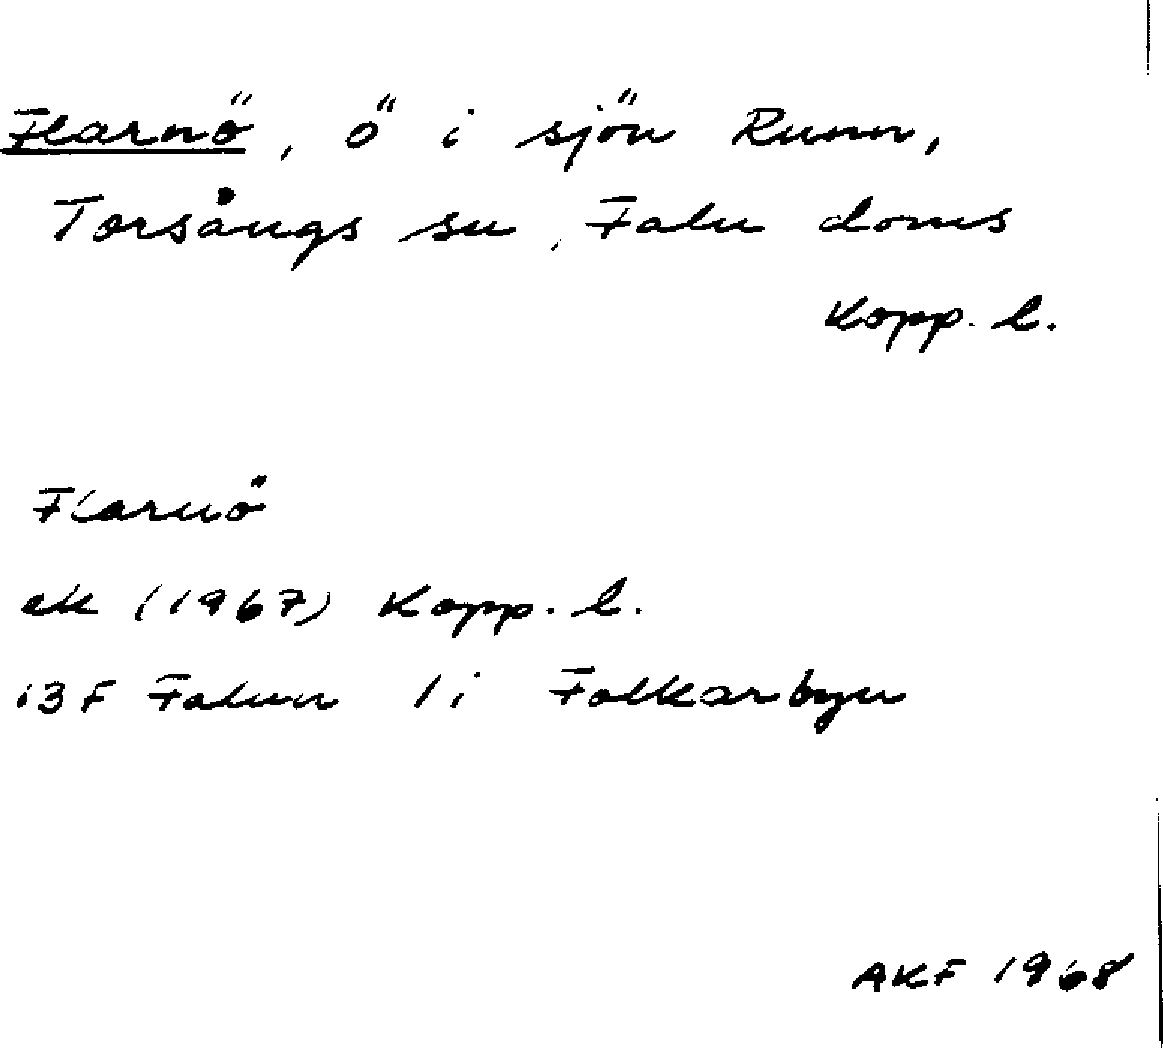 Flarnö, ö i sjön Runn,
Torsångs sn, Falu doms
Kopp. l.
Flarnö
ek (1967) Kopp. l.
13F Falun 1i Folkarbyn
AKF 1968